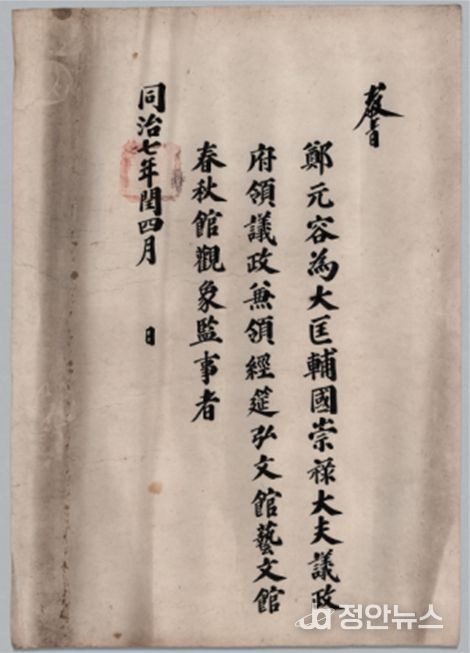 教旨
鄭元容為大匡輔國崇祿大夫議政
府領議政兼領經筵弘文館藝文館
春秋館觀象監事者
同治七年閏四月 日
정안뉴스